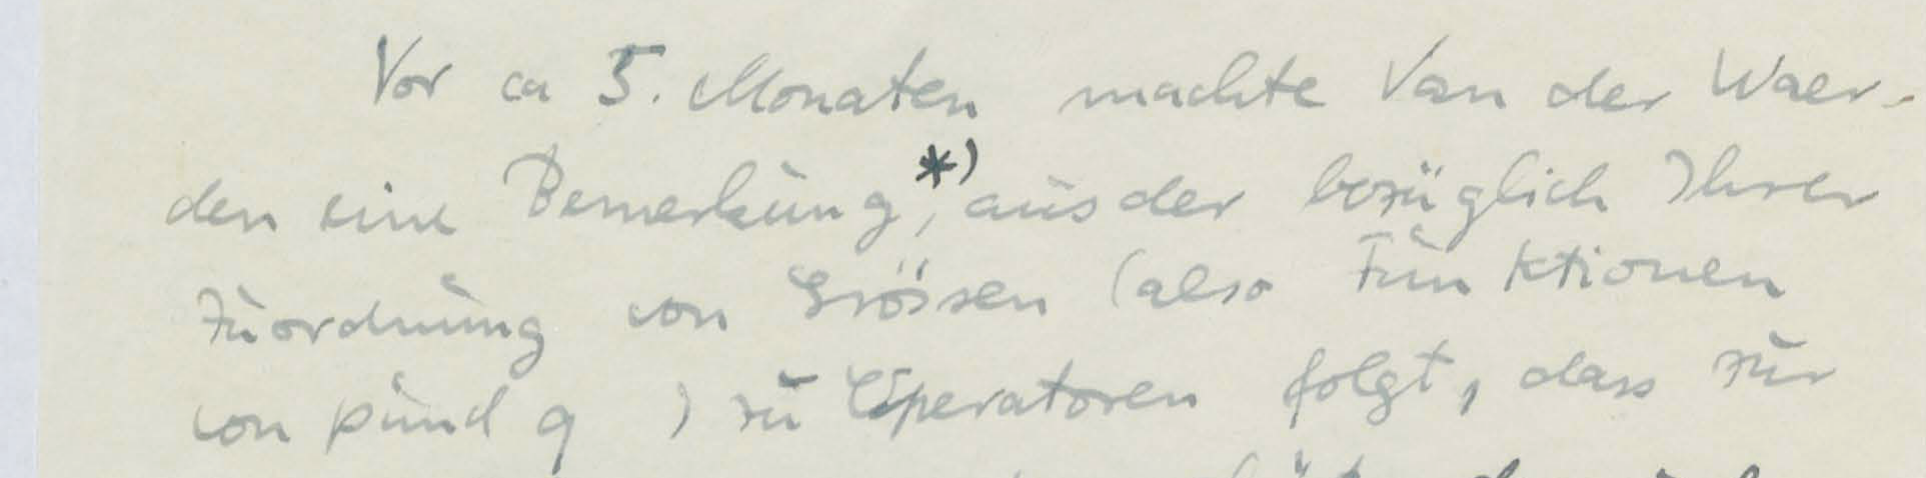 Vor ca 5. Monaten machte Van der Waer-
den eine Bemerkung*), aus der bezüglich Ihrer
Zuordnung von Grössen (also Funktionen
von p und q ) zu Operatoren folgt, dass zur